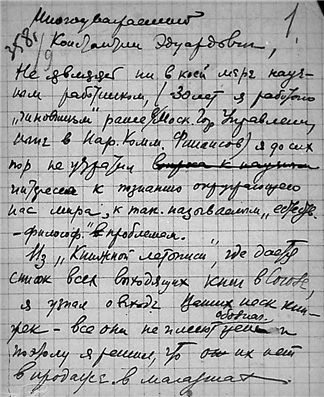 Многоуважаемый 1
Константин Эдуардович,
Не являясь ни в коей мере науч-
ным работником, / 30 лет я работаю
"чиновником" ранее в Моск. Гор. Управлении,
ныне в Нар. Комм. Финансов) я до сих
пор не утратил
интереса к познанию окружающего
нас мира, к так. называемым "естеств.
-философ." проблемам.
Из "Книжной летописи", где дается
список всех выходящих книг в Союзе,
я узнал о выходе Ваших книж-
жек - все они не имеют цены и
поэтому я решил, что их нет
в продаже в магазинах.